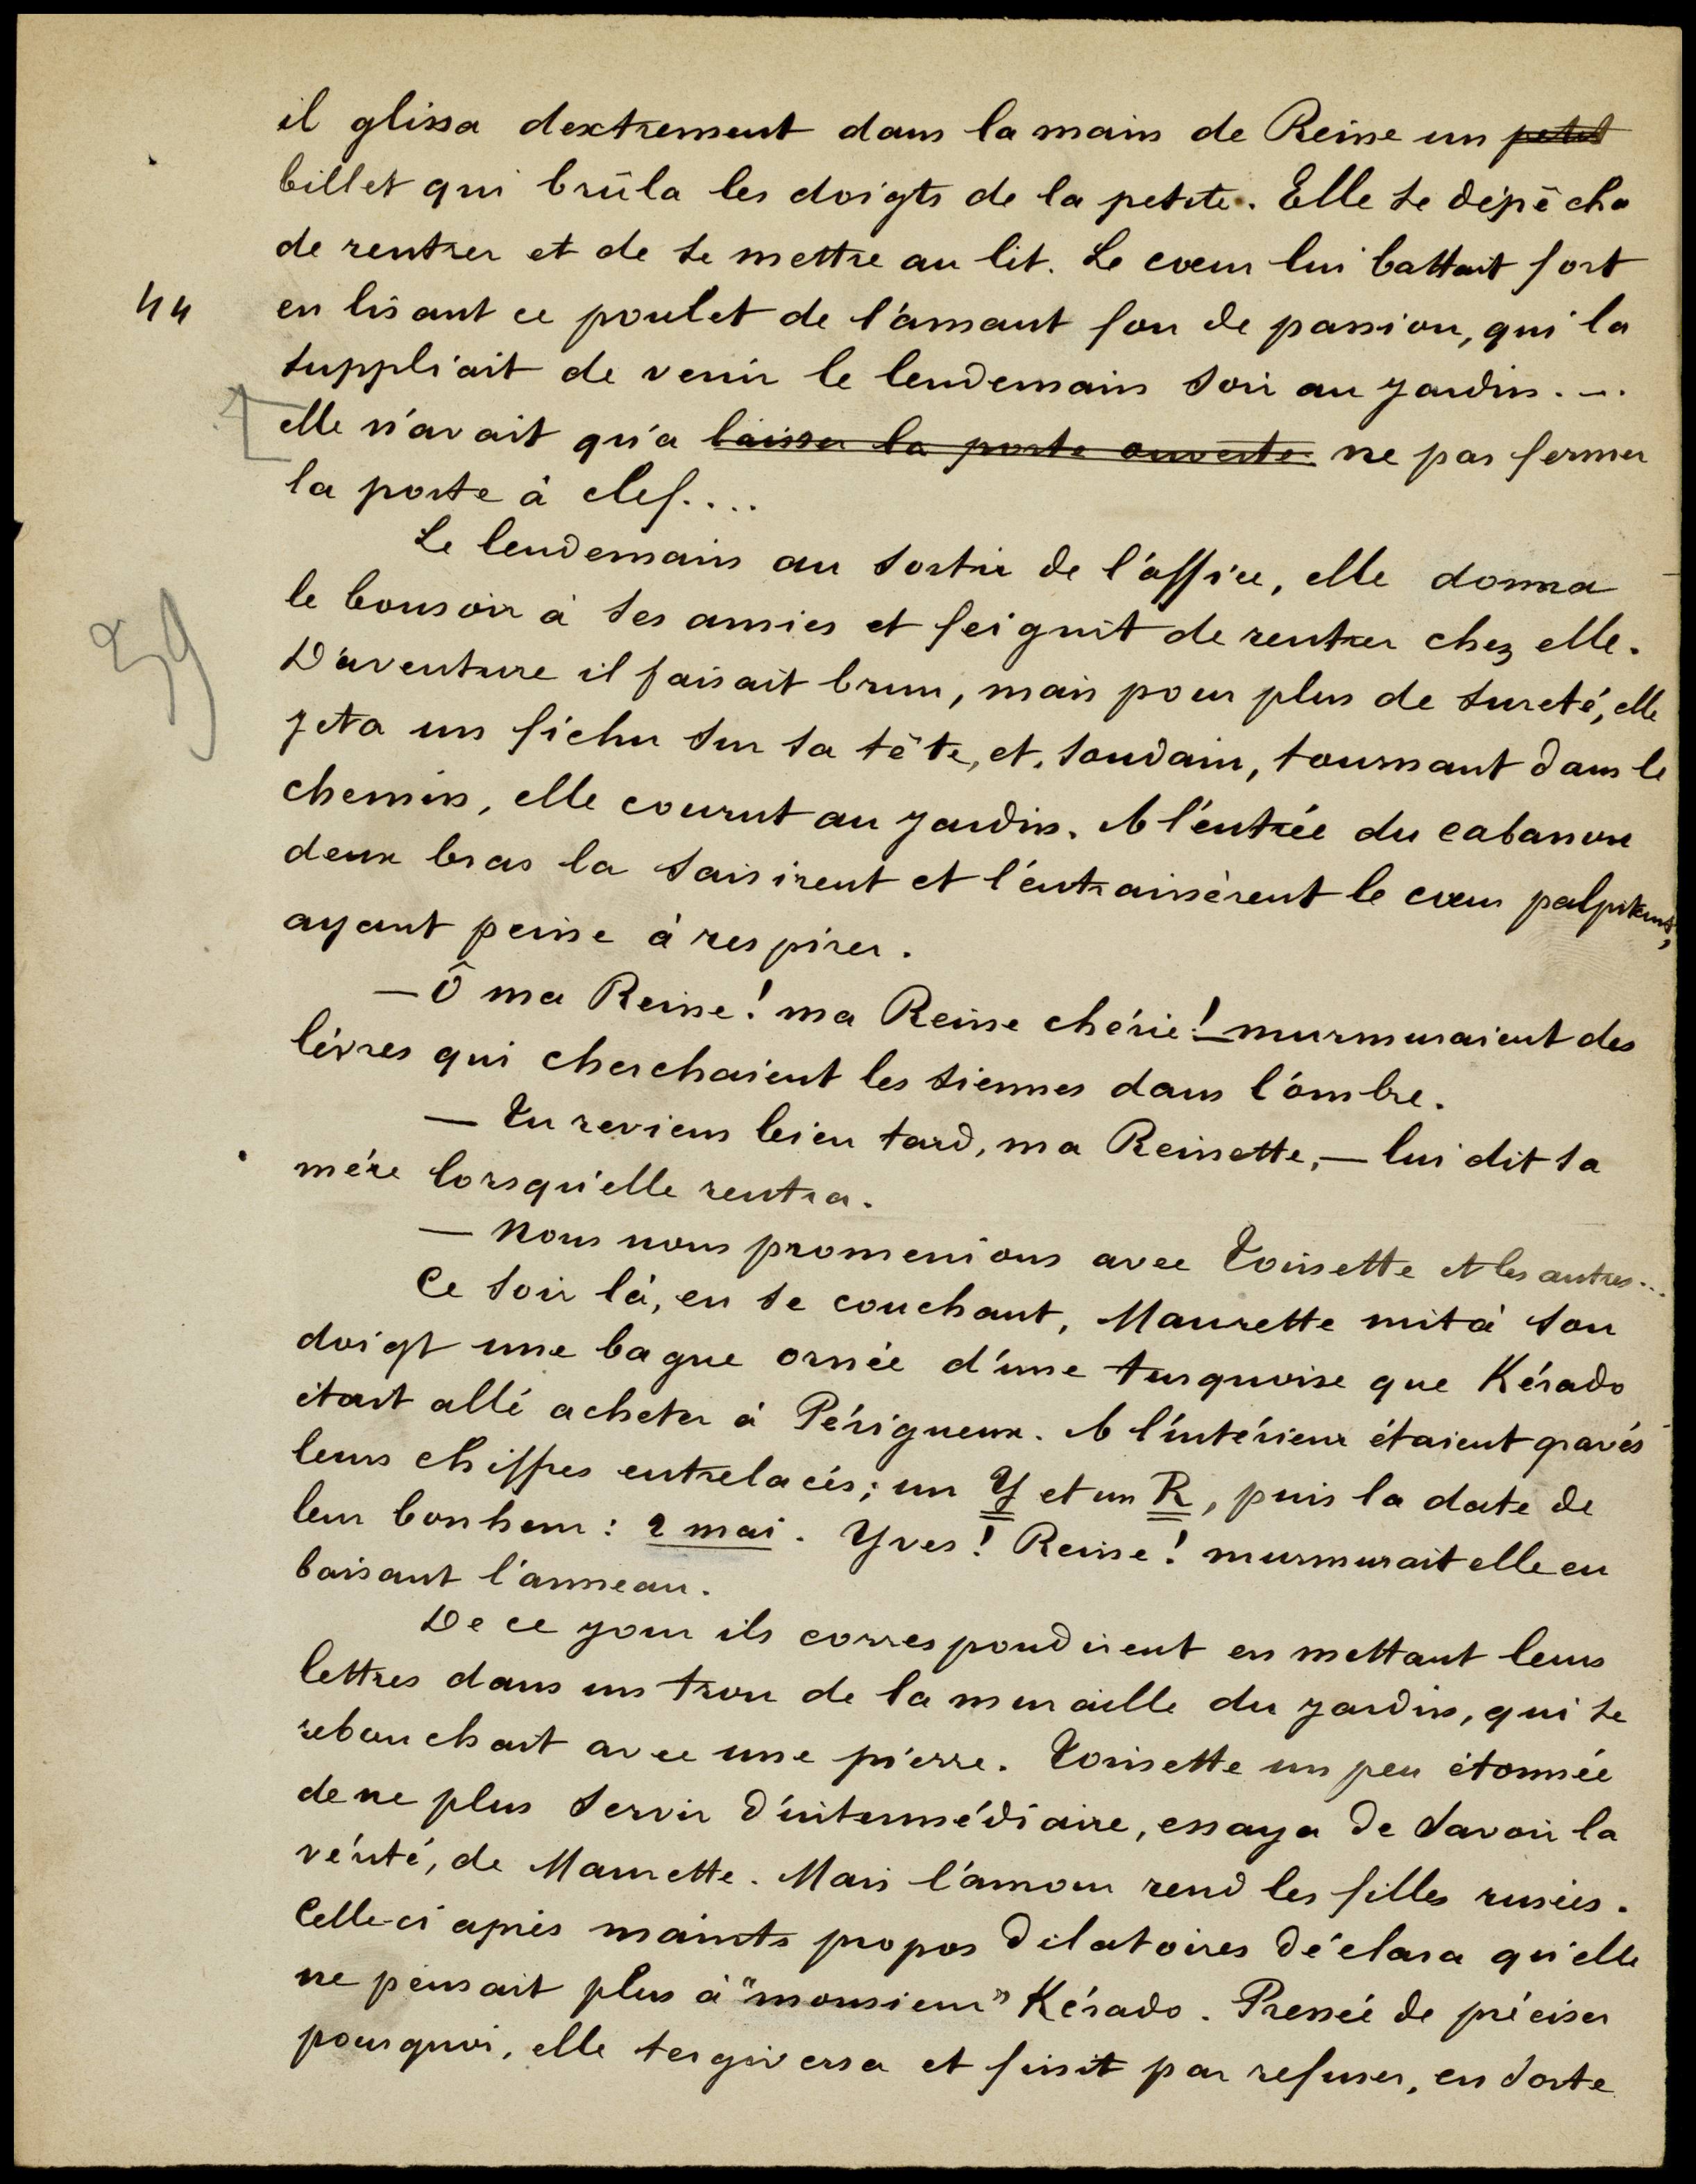 il glissa dextrement dans la main de Reine un petit
billet qui brûla les doigts de la petite. Elle se dépêcha
de rentrer et de se mettre au lit. Le cœur lui battait fort
44
en lisant ce poulet de l'amant fou de passion, qui la
suppliait de venir le lendemain soir au jardin...
elle n'avait qu'a laisser la porte ouverte. ne pas fermer
la porte à clef....
Le lendemain au sortir de l'office, elle donna
le bonsoir à ses amies et feignit de rentrer chez elle.
39
D'aventure il faisait brun, mais pour plus de sureté, elle
jeta un fichu sur sa tête, et, soudain, tournant dans le
chemin, elle courut au jardin. A l'entrée du cabanon
deux bras la saisirent et l'entrainèrent le cœur palpitant,
ayant peine à respirer.
— Ô ma Reine! ma Reine chérie! — murmuraient des
lèvres qui cherchaient les siennes dans l'ombre.
— Tu reviens bien tard, ma Reinette, — lui dit sa
mère lorsqu'elle rentra.
— Nous nous promenions avec Toinette et les autres...
Ce soir là, en se couchant, Maurette mit à son
doigt une bague ornée d'une turquoise que Kérado
était allé acheter à Périgueux. A l'intérieur étaient gravés
leurs chiffres entrelacés; un Y et un R, puis la date de
leur bonheur: 2 mai. Yves! Reine! murmurait elle en
baisant l'anneau.
De ce jour ils correspondirent en mettant leurs
lettres dans un trou de la muraille du jardin, qui se
rebouchait avec une pierre. Toinette un peu étonnée
de ne plus servir d'intermédiaire, essaya de savoir la
vérité, de Maurette. Mais l'amour rend les filles rusées.
Celle-ci après maints propos dilatoires déclara qu'elle
ne pensait plus à "monsieur" Kérado. Pressée de préciser
pourquoi, elle tergiversa et finit par refuser, en sorte